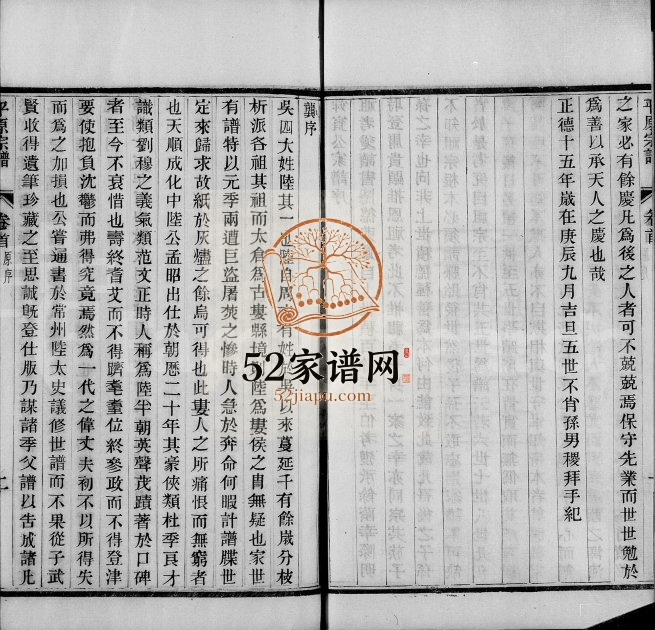 平原宗譜
卷首
之家必有餘慶凡爲後之人者可不兢兢焉保守先業而世世勉於
爲善以承天人之慶也哉
正德十五年歲在庚辰九月吉旦五世不肖孫男稷拜手紀
龔序
吳四大姓陸其一也陸自周 有姓 吳以來蔓延千有餘歲分枝
析派各祖其祖而太倉爲古婁縣境 陸爲婁侯之胄無疑也家世
有譜特以元季兩遭巨盜屠焚之慘時人急於奔命何暇計譜牒世
定來歸求故紙於灰燼之餘烏可得也此婁人之所痛恨而無窮者
也天順成化中陸公孟昭出仕於朝歷二十年其豪俠類杜季良才
識類劉穆之義氣類范文正時人稱爲陸半朝英聲茂蹟著於口碑
者至今不衰惜也壽終耆艾而不得躋耄耋位終參政而不得登津
要使抱負沈鬱而弗得究竟焉然爲一代之偉丈夫初不以所得失
而爲之加損也公嘗遍書於常州陸太史議修世譜而不果從子武
賢收得遺筆珍藏之至思誠旣登仕版乃謀諸季父譜以告成諸凡
平原宗譜
卷首
原序
52家谱网
52jiapu.com